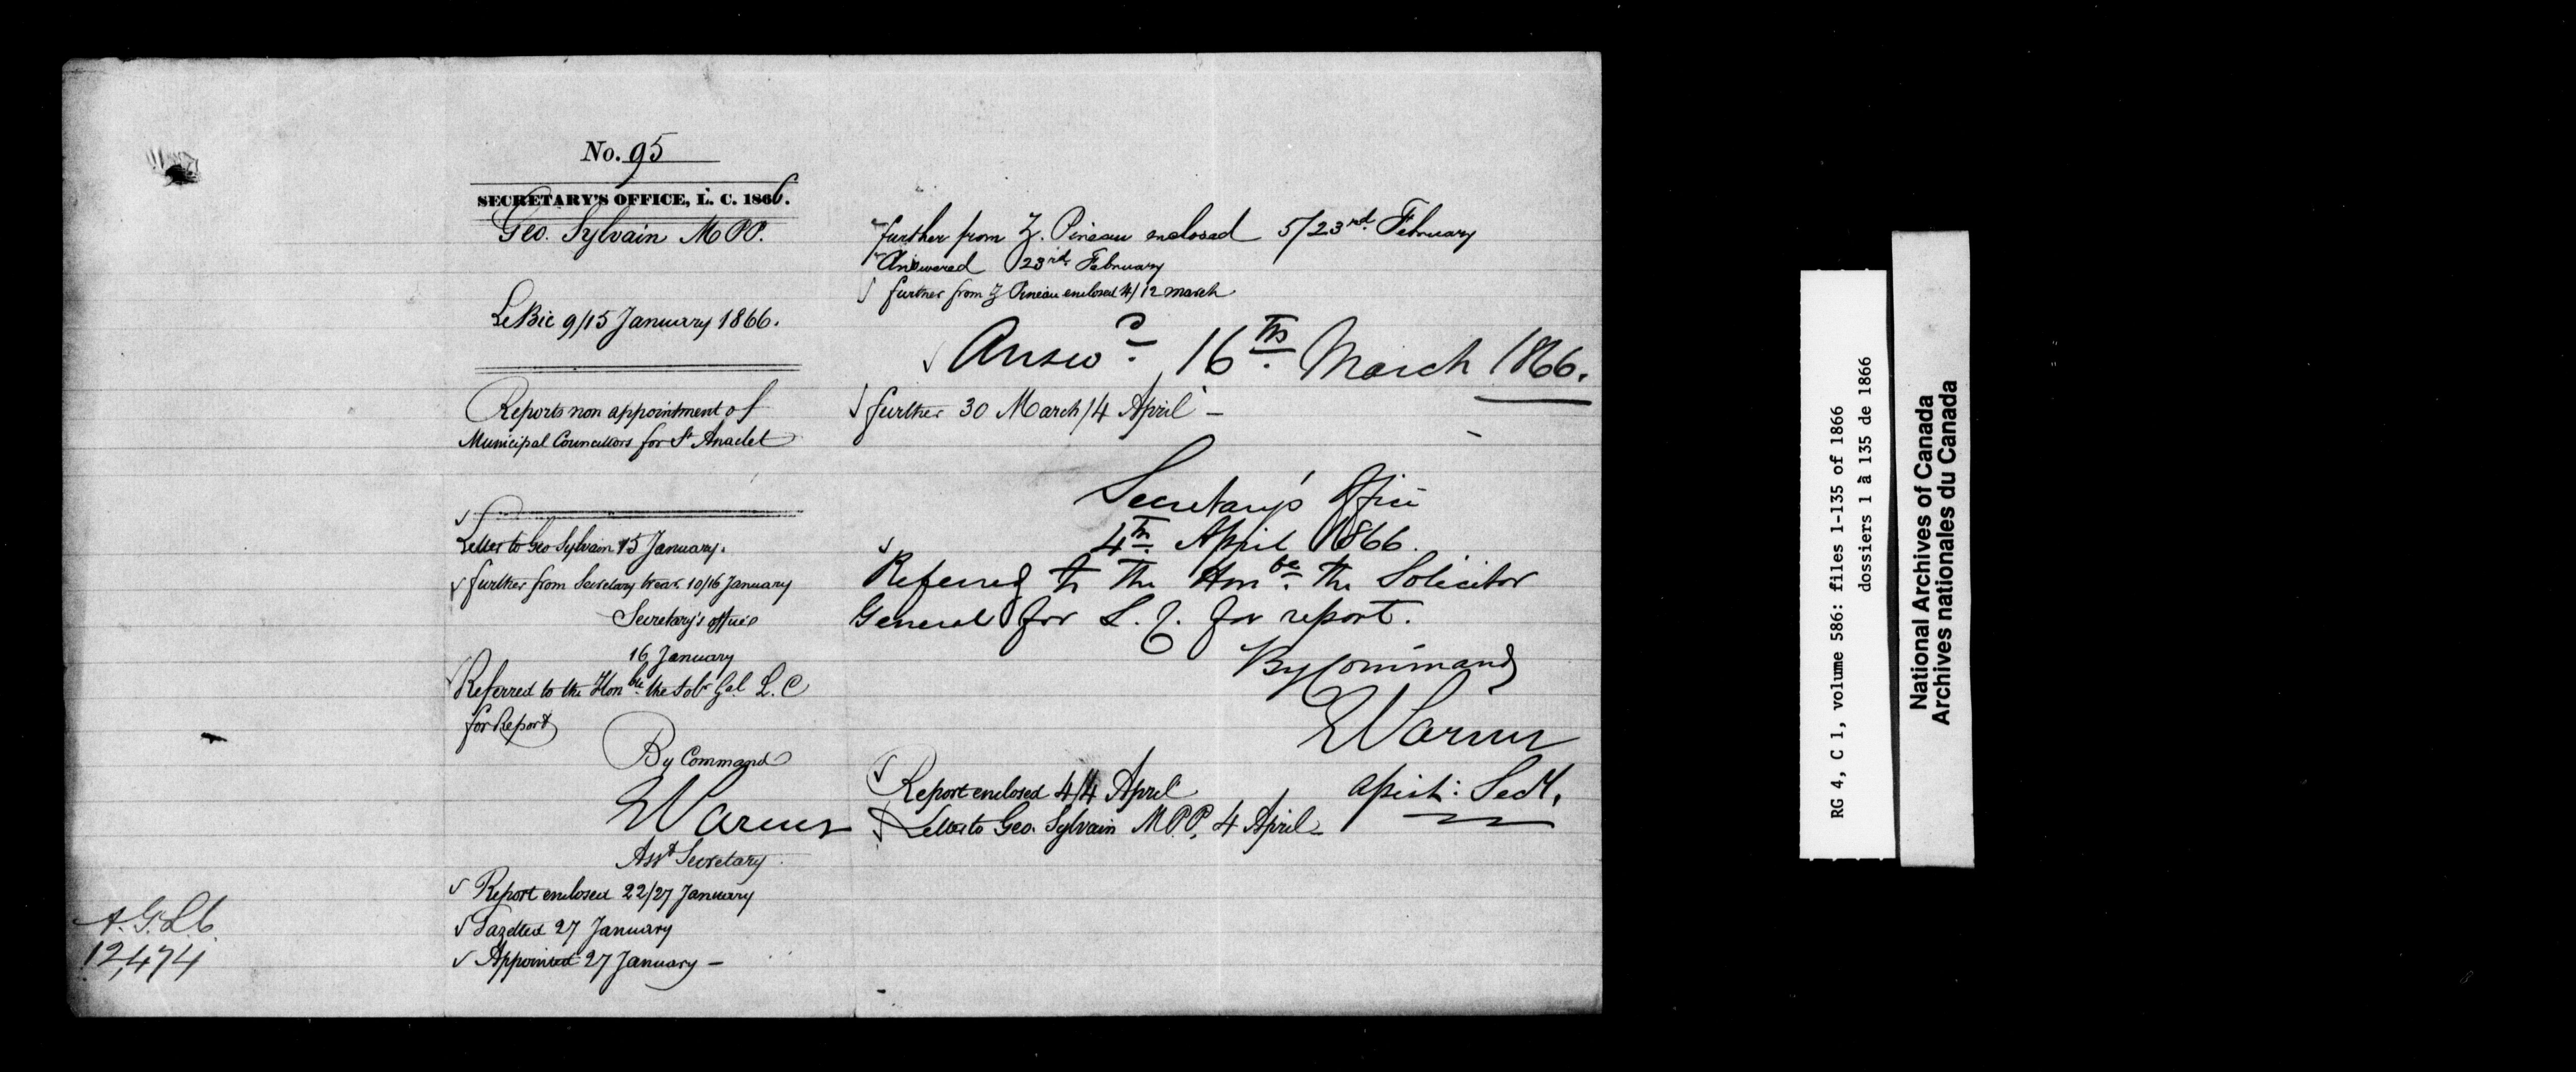 No. 95
SECRETARY'S OFFICE, L. C. 1866.
Geo. Sylvain M.P.P.
Le Bic 9/15 January 1866.
Reports non appointment of
Municipal Councillors for St Anaclet
Letter to Geo Sylvain 15 January.
further from Secretary treas. 10/16 January
Secretary's office
16 January
Referred to the Honble the Solr Gal L. C
for Report
By Command
E Parent
Asst Secretary
Report enclosed 22/27 January
Gazetted 27 January
Appointed 27 January –
A. G. L. C.
12,474
further from Z. Pineau enclosed 5/23rd February
Answered 23rd February
further from Z Pineau enclosed 4/12 march
Answd. 16th March 1866.
further 30 March/4 April –
Secretary's Office
4th April 1866.
Referred to the Honble. the Solicitor
General for L. C. for report.
By Command
E Parent
Assist: Secy.
Report enclosed 4/4 April
Letter to Geo. Sylvain M.P.P. 4 April
RG 4, C 1, volume 586: files 1-135 of 1866
dossiers 1 à 135 de 1866
National Archives of Canada
Archives nationales du Canada